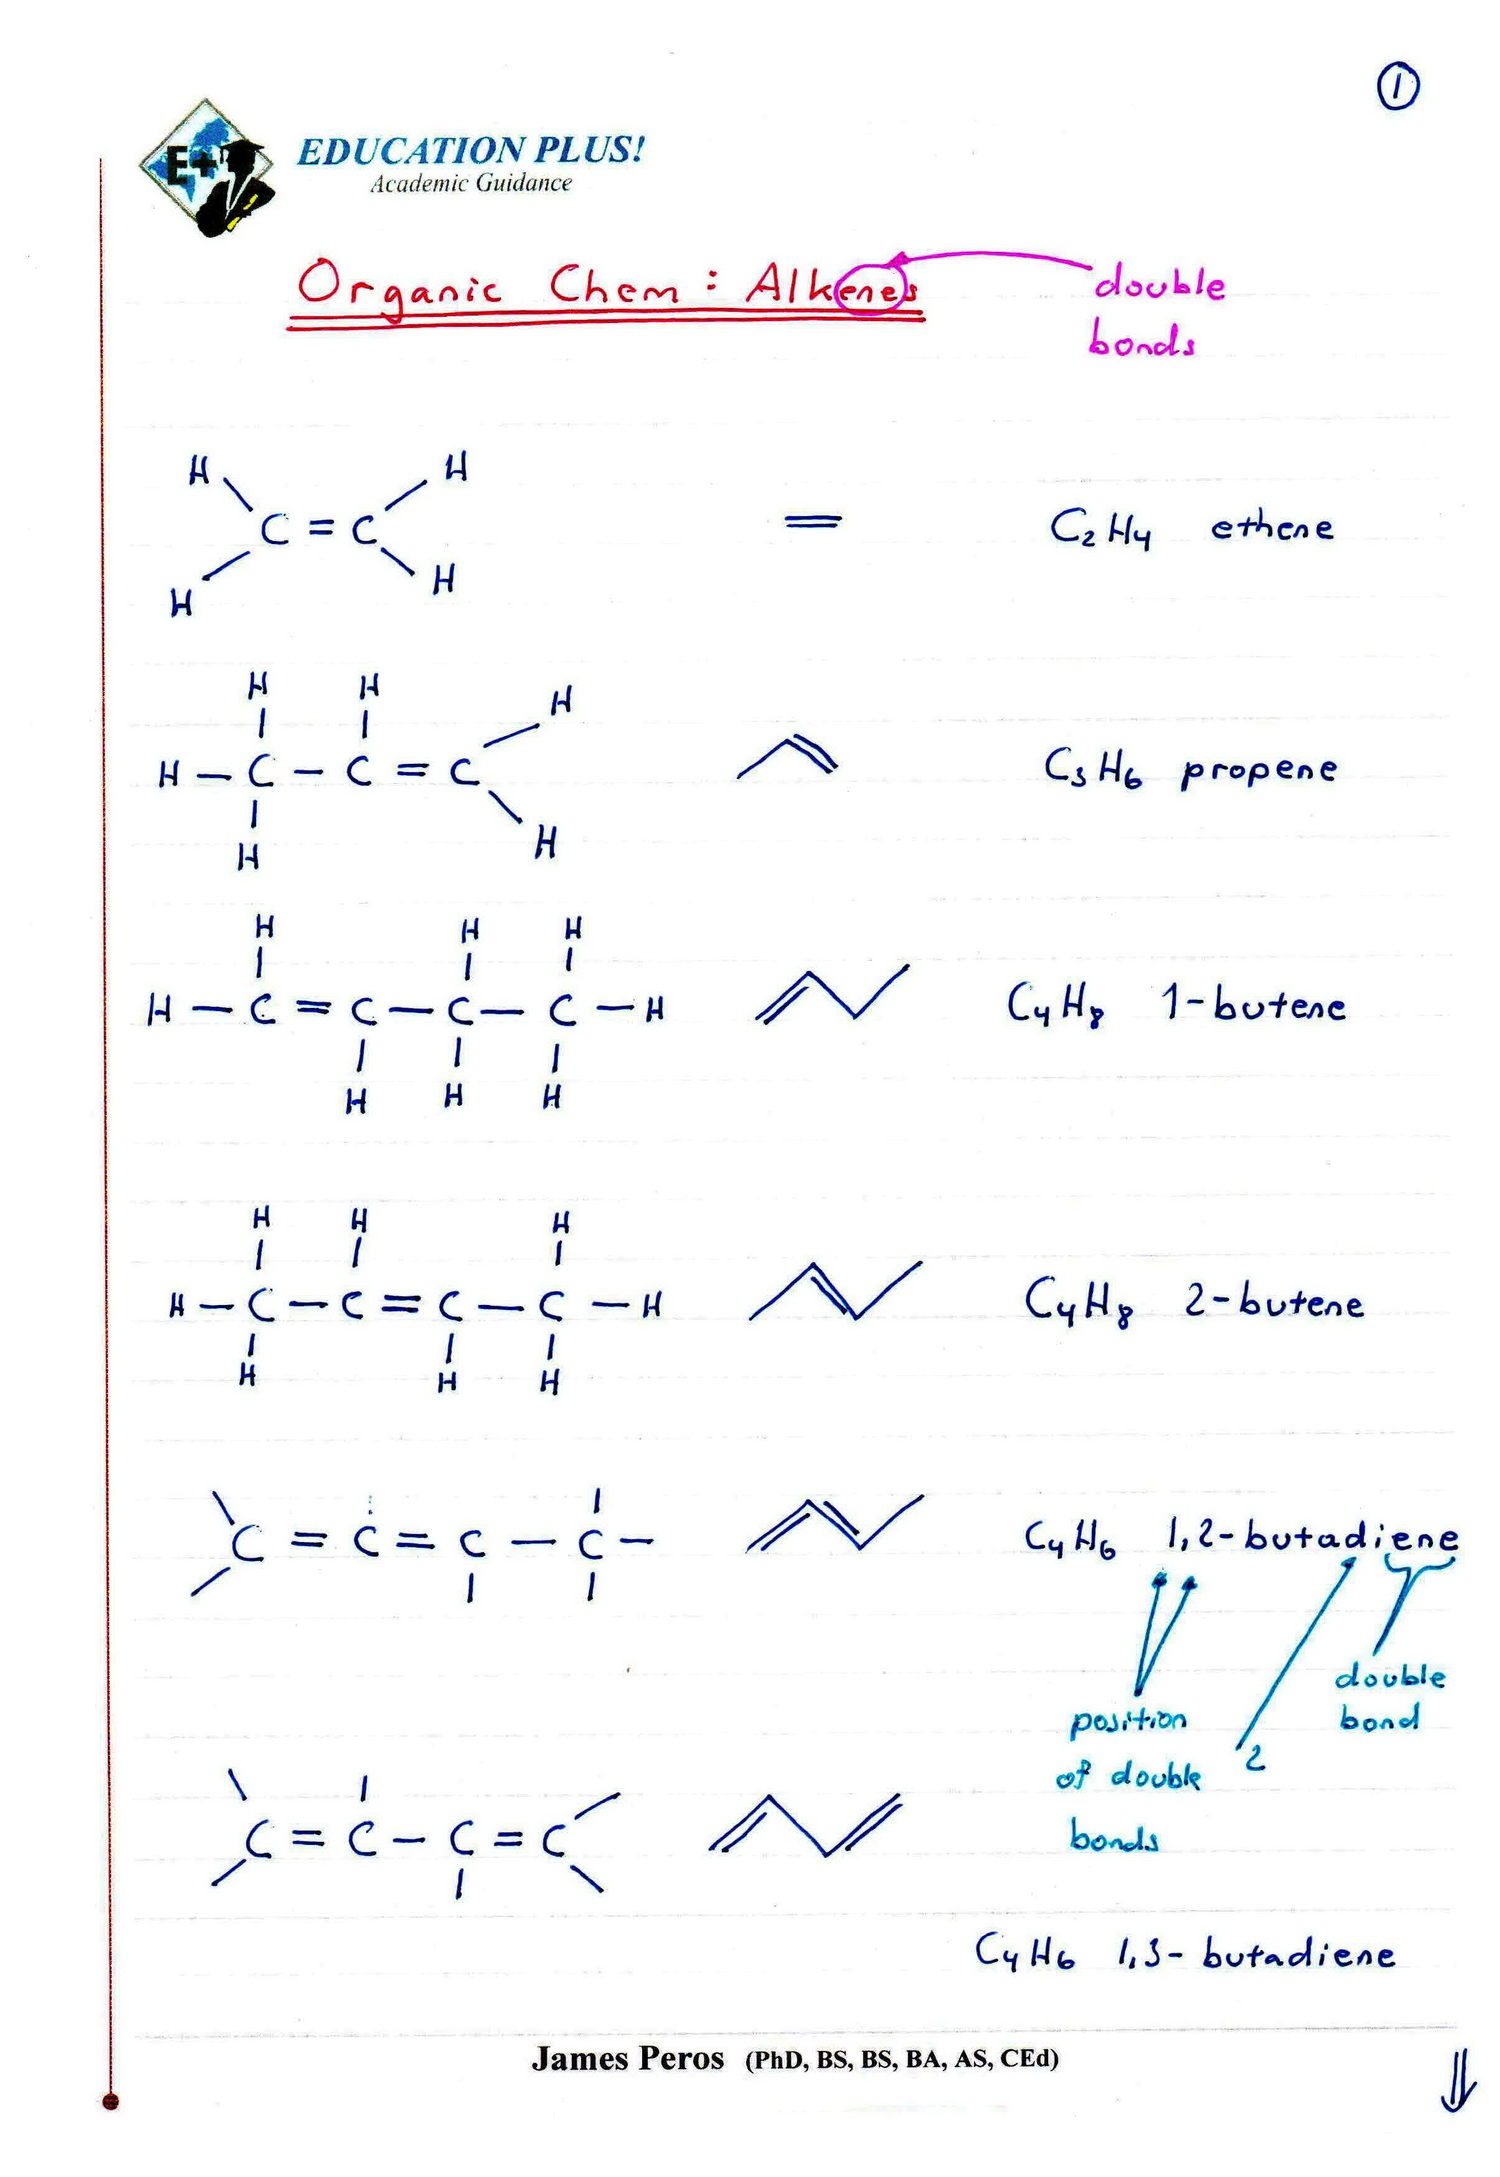 1
E+
EDUCATION PLUS!
Academic Guidance
Organic Chem : Alkenes
double
bonds
H H
C = C
H H
C₂H₄ ethene
H H H
H – C – C = C
H H
C₃H₆ propene
H H H
H – C = C – C – C – H
H H H
C₄H₈ 1-butene
H H H
H – C – C = C – C – H
H H H
C₄H₈ 2-butene
C = C = C – C –
C₄H₆ 1,2-butadiene
double
bond
position
of double
bonds
2
C = C – C = C
C₄H₆ 1,3-butadiene
James Peros (PhD, BS, BS, BA, AS, CEd)